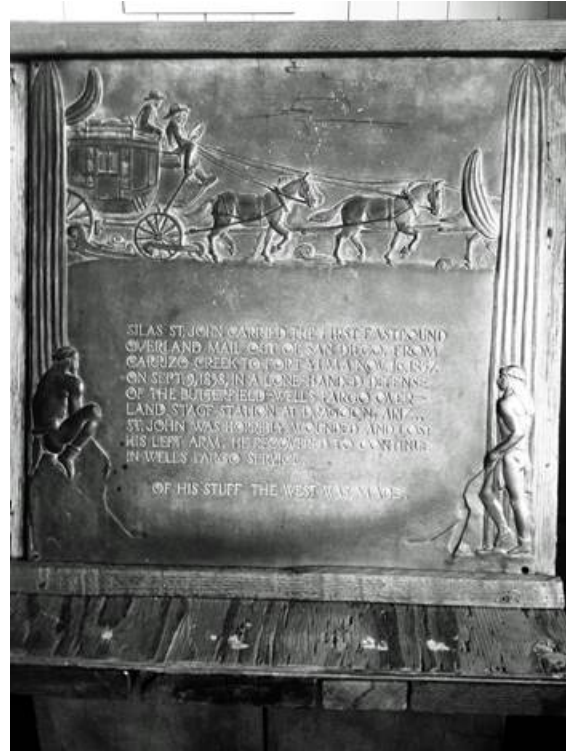 SILAS ST. JOHN CARRIED THE FIRST EASTBOUND
OVERLAND MAIL OUT OF SAN DIEGO, FROM
CARRIZO CREEK TO FORT YUMA NOV. 16, 1857.
ON SEPT. 9, 1858, IN A LONE-HANDED DEFENSE
OF THE BUTTERFIELD-WELLS FARGO OVER-
LAND STAGE STATION AT DRAGOON, ARIZ.,
ST. JOHN WAS HORRIBLY WOUNDED AND LOST
HIS LEFT ARM. HE RECOVERED TO CONTINUE
IN WELLS FARGO SERVICE.
OF HIS STUFF THE WEST WAS MADE.